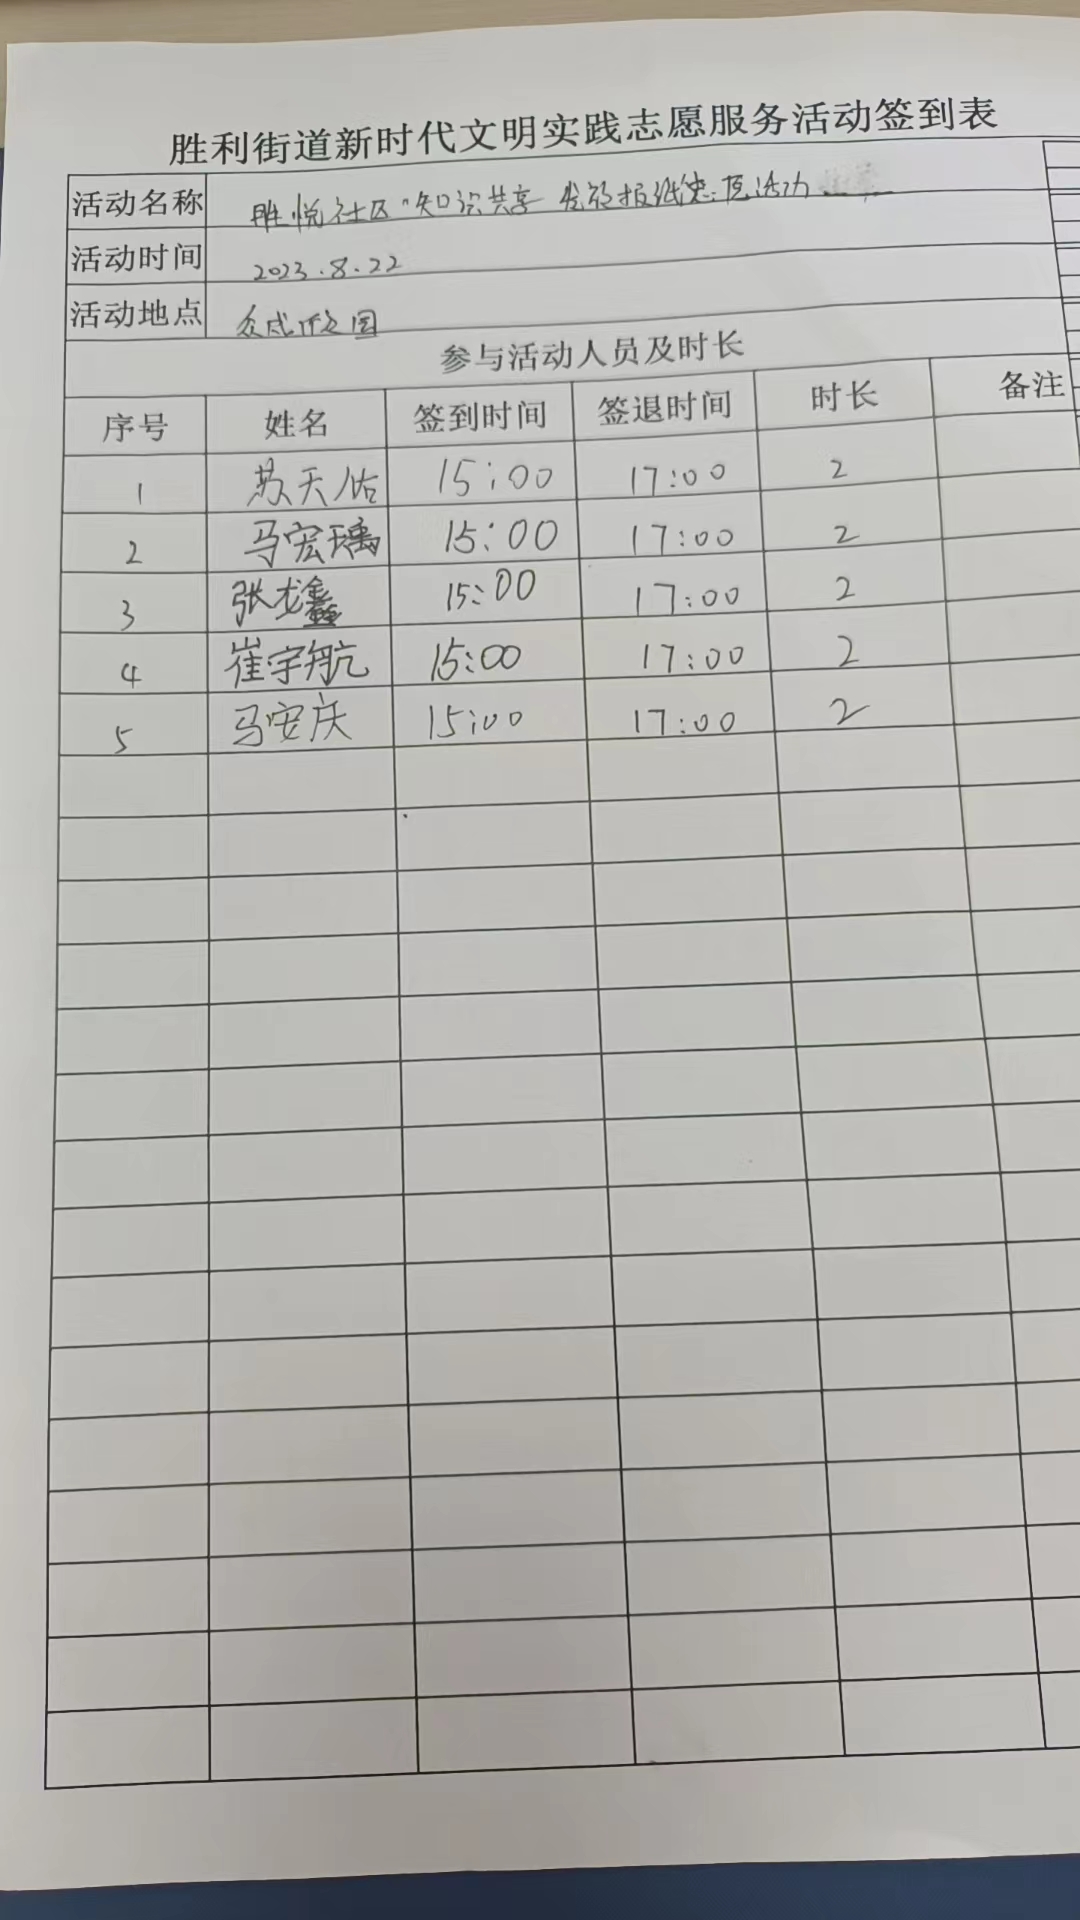 胜利街道新时代文明实践志愿服务活动签到表
活动名称 胜悦社区"知识共享 发放报纸志愿活动
活动时间 2023.8.22
活动地点 众成 园
参与活动人员及时长
序号 姓名 签到时间 签退时间 时长 备注
1 苏天佑 15:00 17:00 2
2 马宏瑀 15:00 17:00 2
3 张龙鑫 15:00 17:00 2
4 崔宇航 15:00 17:00 2
5 马安庆 15:00 17:00 2